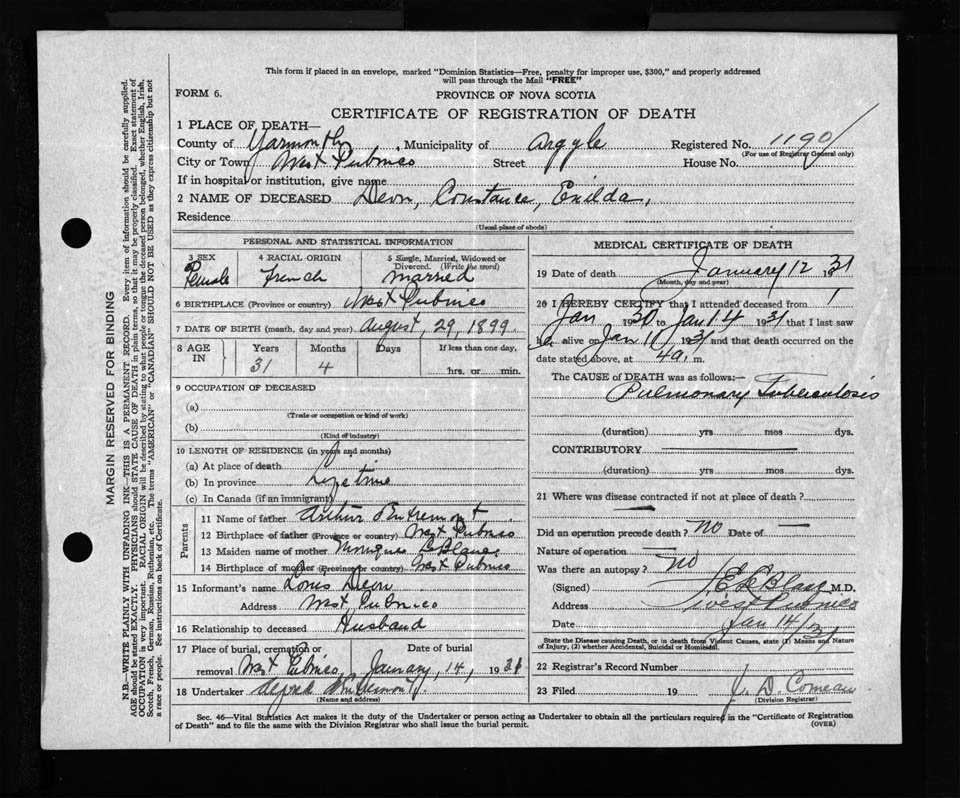 This form if placed in an envelope, marked "Dominion Statistics—Free, penalty for improper use, $300," and properly addressed
will pass through the Mail "FREE"
FORM 6.
PROVINCE OF NOVA SCOTIA
CERTIFICATE OF REGISTRATION OF DEATH
1 PLACE OF DEATH—
County of Yarmouth, Municipality of Argyle Registered No. 1190
(For use of Registrar General only)
City or Town West Pubnico Street House No.
If in hospital or institution, give name
2 NAME OF DECEASED Deon, Constance, Enilda,
Residence
(Usual place of abode)
PERSONAL AND STATISTICAL INFORMATION
3 SEX 4 RACIAL ORIGIN 5 Single, Married, Widowed or
Divorced. (Write the word)
Female French Married
6 BIRTHPLACE (Province or country) West Pubnico
7 DATE OF BIRTH (month, day and year) August, 29, 1899
8 AGE IN Years Months Days If less than one day,
31 4 hrs. or min.
9 OCCUPATION OF DECEASED
(a)
(Trade or occupation or kind of work)
(b)
(Kind of industry)
10 LENGTH OF RESIDENCE (in years and months)
(a) At place of death
(b) In province Lifetime
(c) In Canada (if an immigrant)
Parents
11 Name of father Arthur Entremont
12 Birthplace of father (Province or country) West Pubnico
13 Maiden name of mother LeBlanc
14 Birthplace of mother (Province or country) West Pubnico
15 Informant's name Louis Deon
Address West Pubnico
16 Relationship to deceased Husband
17 Place of burial, cremation or removal West Pubnico Date of burial January, 14, 1931
18 Undertaker
(Name and address)
MEDICAL CERTIFICATE OF DEATH
19 Date of death January 12 31
(Month, day and year)
20 I HEREBY CERTIFY that I attended deceased from
Jan 1930 to Jan 14 1931 that I last saw
her alive on Jan 1931 and that death occurred on the
date stated above, at 4 a. m.
The CAUSE of DEATH was as follows:—
Pulmonary Tuberculosis
(duration) yrs mos dys.
CONTRIBUTORY
(duration) yrs mos dys.
21 Where was disease contracted if not at place of death?
Did an operation precede death? no Date of
Nature of operation
Was there an autopsy? no
(Signed) LeBlanc M.D.
Address West Pubnico
Date Jan 14/31
State the Disease causing Death, or in death from Violent Causes, state (1) Means and Nature
of Injury, (2) whether Accidental, Suicidal or Homicidal.
22 Registrar's Record Number
23 Filed 19 J. D. Comeau
(Division Registrar)
Sec. 46—Vital Statistics Act makes it the duty of the Undertaker or person acting as Undertaker to obtain all the particulars required in the "Certificate of Registration
of Death" and to file the same with the Division Registrar who shall issue the burial permit.
(OVER)
MARGIN RESERVED FOR BINDING
N.B.—WRITE PLAINLY WITH UNFADING INK—THIS IS A PERMANENT RECORD. Every item of information should be carefully supplied.
AGE should be stated EXACTLY. PHYSICIANS should STATE CAUSE OF DEATH in plain terms, so that it may be properly classified. Exact statement of
OCCUPATION is very important. RACIAL ORIGIN will be described by stating to what people or tongue the deceased person belonged, whether English, Irish,
Scotch, French, German, Russian, Ruthenian, etc. The terms "AMERICAN" or "CANADIAN" SHOULD NOT BE USED as they express citizenship but not
a race or people. See instructions on back of Certificate.